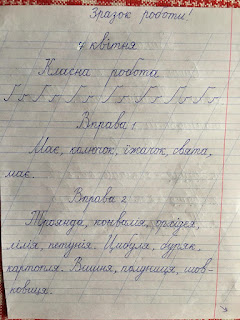 Зразок роботи!
7 квітня
Класна робота
Г г Г г Г г Г г Г г Г г Г г Г г
Вправа 1.
Має, колючок, їжачок, свята,
має.
Вправа 2.
Троянда, конвалія, орхідея,
лілія, петунія. Цибуля, буряк,
картопля. Вишня, полуниця, шов-
ковиця.